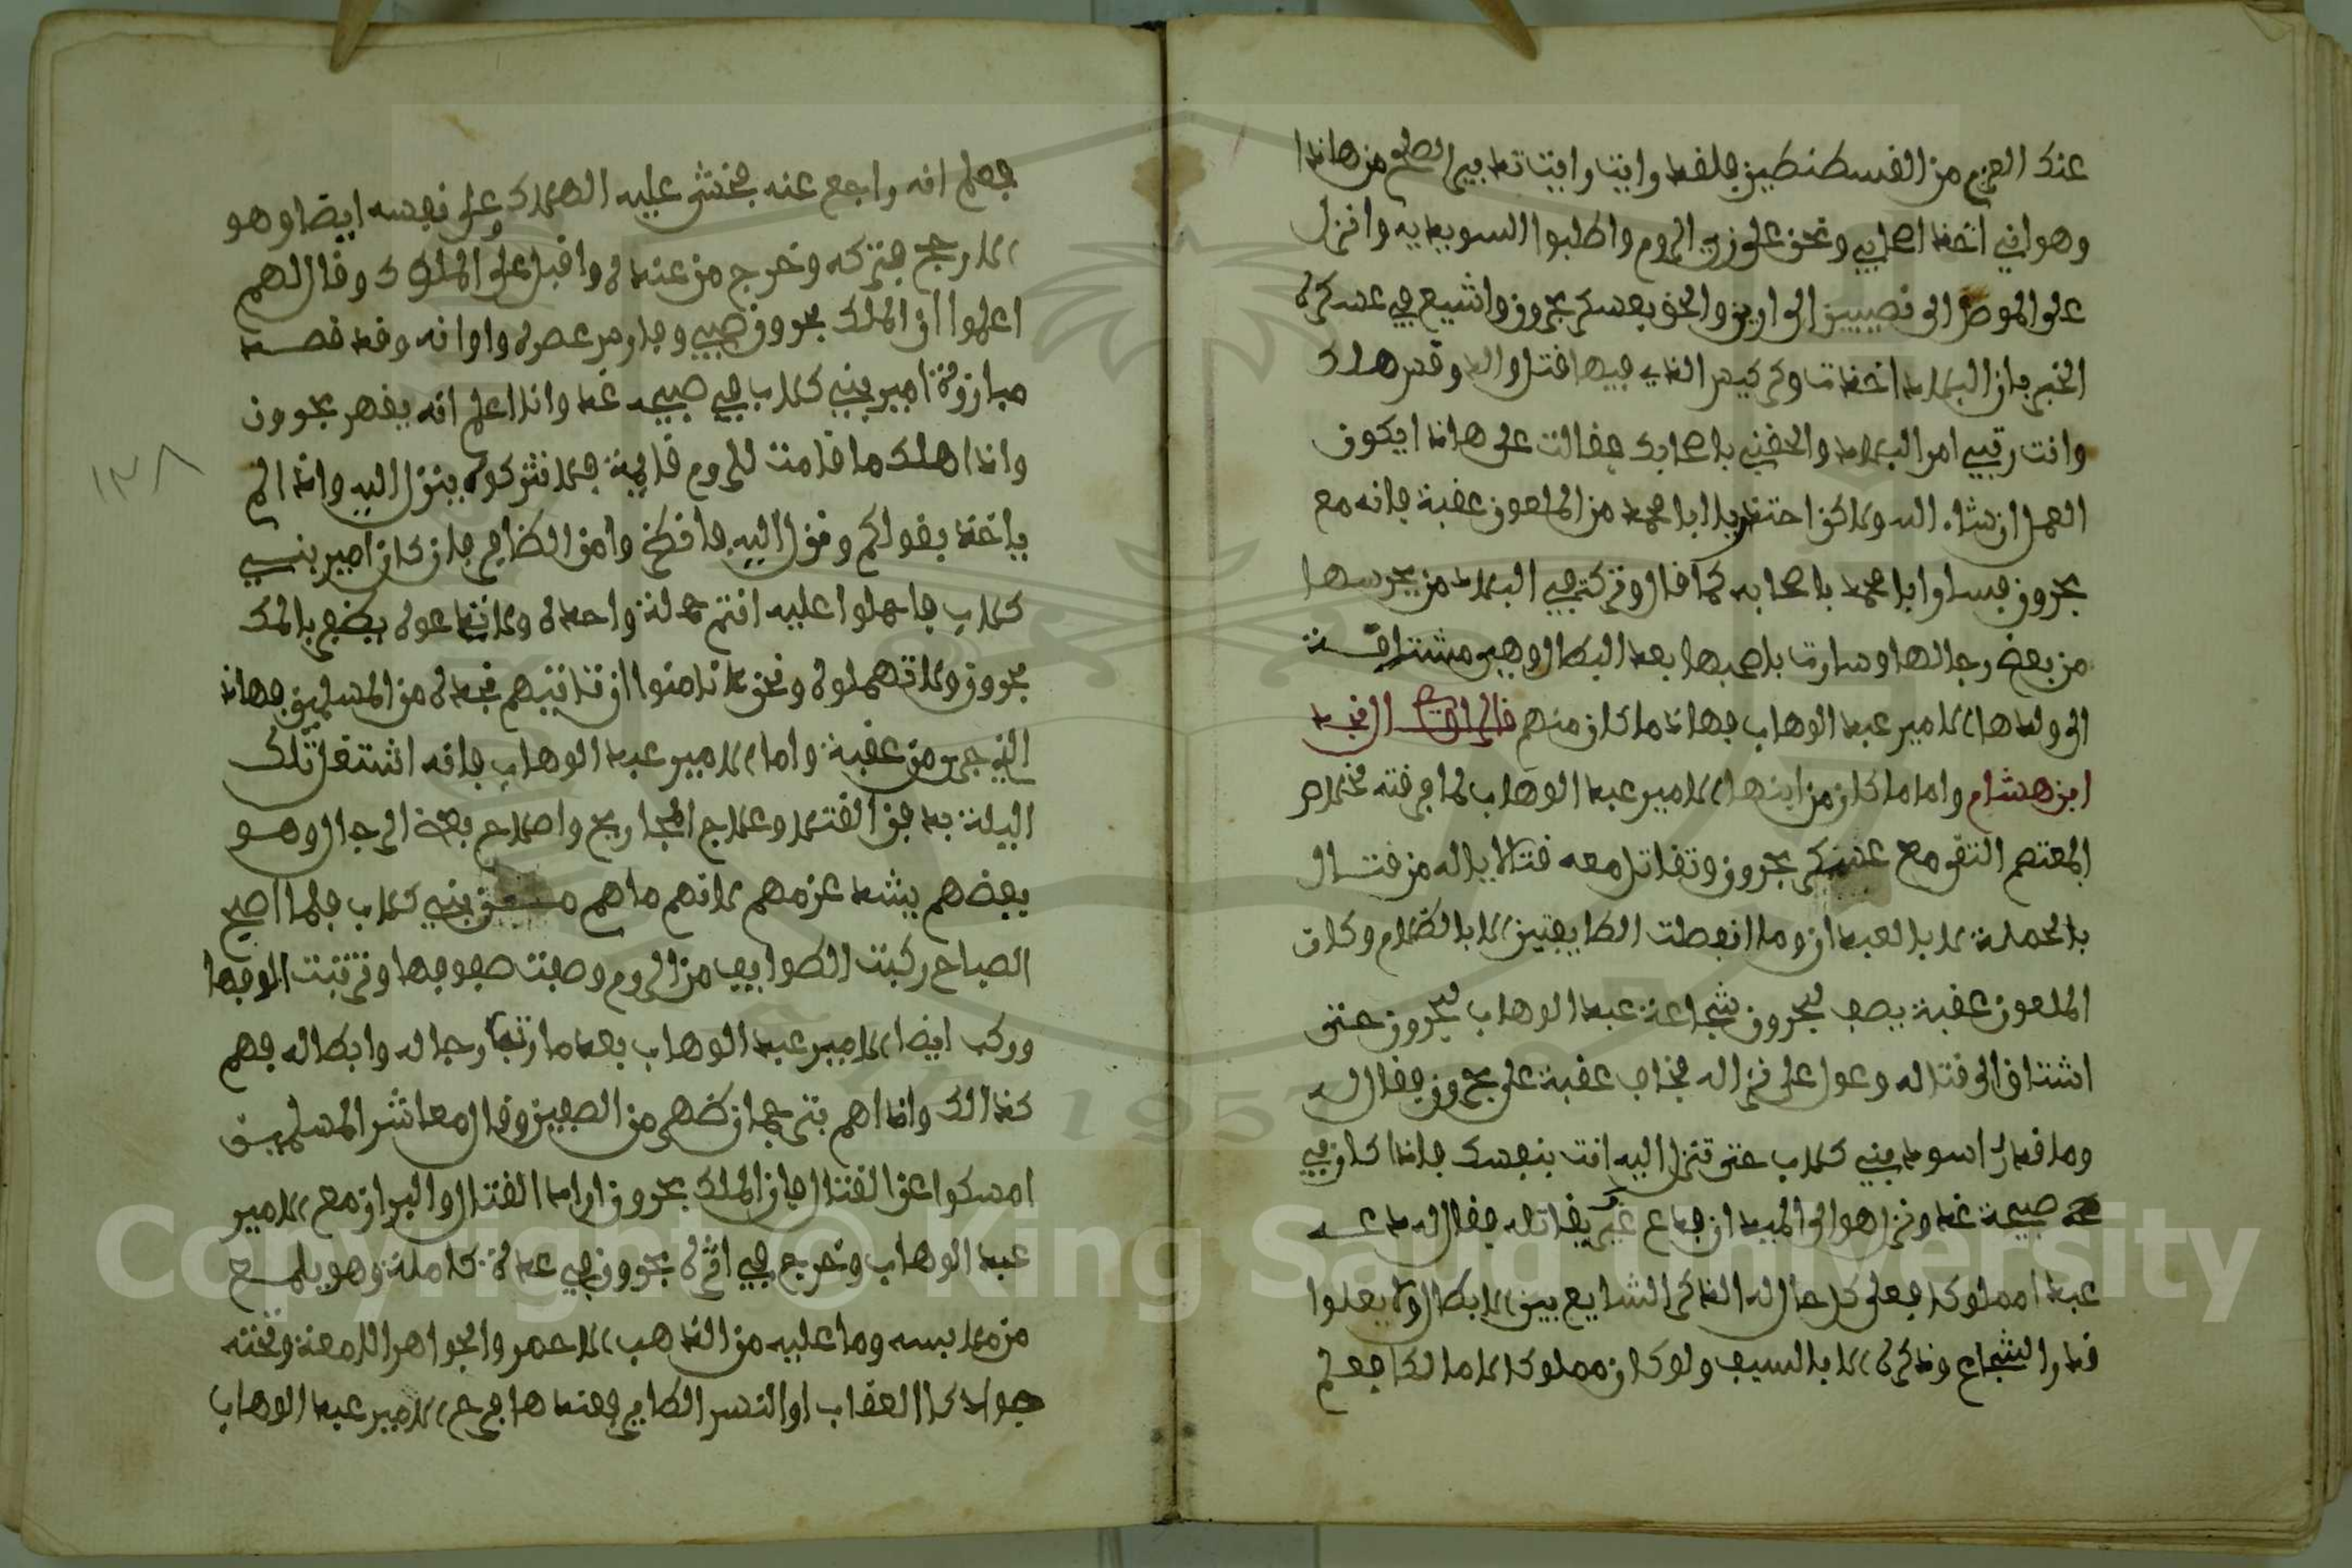 عندك العزم من القسطنطين فلقد رايت رايت تدبيرا لصلح من هاذا
وهو اني اتخذ اصحابي ونحن على زي الروم واطلبوا السويدية وانزل
على الموصل الى نصيبين الى اريز والحق بعسكر بحرون واشيع في عسكره
الخبر بان البلاد اخذت وكركيدر الذي فيها اقتلوا له وقدر هلك
وانت رقبي امر البلاد والحقني باصحابك فقالت على هاذا يكون
العمل ان شاء الله ولاكن احتذر يا ابا محمد من الملعون عقبة فانه مع
بحرون فسار ابا محمد باصحابه كما قال وتركت في البلاد من يحرسها
من بعض رجالها وسارت باصحبها بعد البطال وهي مشتاقة
الى ولدها الامير عبد الوهاب فهاذا ما كان منهم قال الراوي نجد
ابن هشام واما ما كان من ابنها الامير عبد الوهاب لما فرقته نخلاص
المعتصم التقى مع عسكر بحرون وتقاتل معه قتالا ياله من قتال
بالحملة لا بالعبدان وما انفصلت الطايفتين الا بالظلام وكان
الملعون عقبة يصف لبحرون شجاعة عبد الوهاب لبحرون حتى
اشتاق الى قتاله وعول على نزاله فخاف عقبة على بحرون فقال له
وما قدر اسود بني كلاب حتى تنزل اليه انت بنفسك فاذا كان في
صبيحة غد ونزل هو الى الميدان فدع غيرك يقاتله فقال له دعه
عبدا مملوكا فعلى كل حال له الذكر الشايع بين الابطال ولا يعلوا
قدر الشجاع وذكره الا بالسيف ولو كان مملوكا لا مالكا فعلم
فعلم انه واقع عنه فخشي عليه الهلاك وعلى نفسه ايضا وهو
الارجح فتركه وخرج من عنده واقبل على الملوك وقال لهم
اعلموا ان الملك بحرون صبي وفارس عصره واوانه وقد قصد
مبارزة امير بني كلاب في صبيحة غد وانا اعلم انه يقهر بحرون
واذا هلك ما قامت للروم قايمة فلا تتركوه ينزل اليه واذا لم
ياخذ بقولكم ونزل اليه فافطن وامن الظافر فان كان امير بني
كلاب فاحملوا عليه انتم حملة واحدة ولا تدعوه يظفر بالملك
بحرون ولا تهملوه ونحن لا نامنوا ان تاتيهم نجدة من المسلمين فهاذا
الذي جرى من عقبة واما الامير عبد الوهاب فانه اشتغل تلك
اليلة بدفن القتلى وعلاج المجاريح واصلاح بقية الرجال وهو
بعضهم يشد عزمهم لانهم ما هم من بني كلاب فلما اصبح
الصباح ركبت الطوايف من الروم وصفت صفوفها وترتبت الوفها
وركب ايضا الامير عبد الوهاب بعد ما رتب رجاله وابطاله فهم
كذالك واذا هم بترجمان ظهر من الصفين وقال معاشر المسلمين
امسكوا عن القتال فان الملك بحرون اراد القتال والبراز مع الامير
عبد الوهاب وخرج في اثره بحرون في عدة كاملة وهو يلمع
من ملابسه وما عليه من الذهب الاحمر والجواهر اللامعة وتحته
جواد كا العقاب او النسر الطاير فعندها فرح الامير عبد الوهاب
١٣٨
Copyright © King Saud University
1957